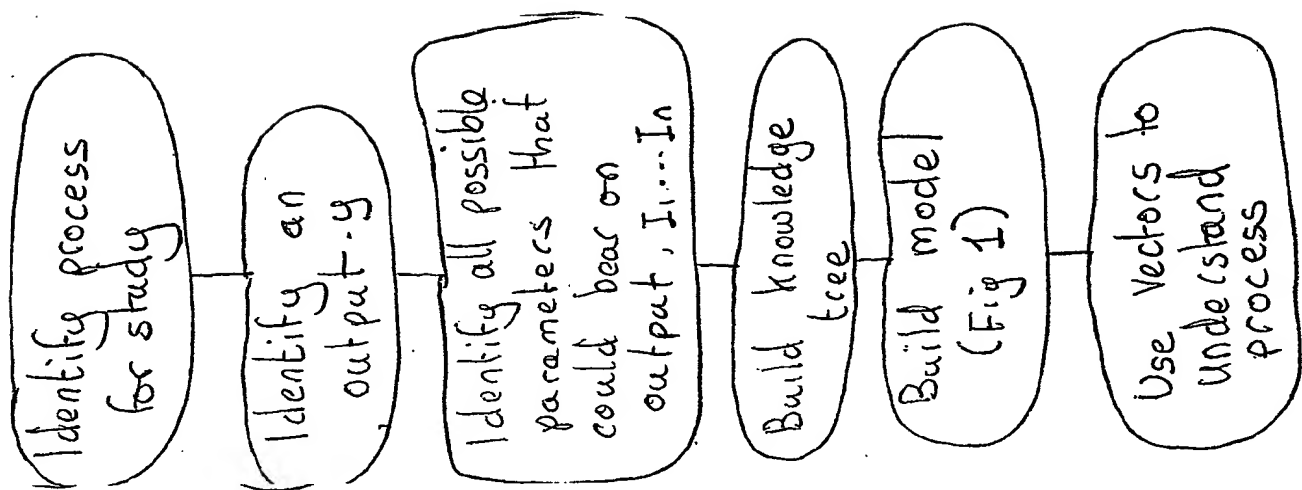 Identify process
for study
Identify an
output-y
Identify all possible
parameters that
could bear on
output, I1....In
Build knowledge
tree
Build model
(Fig 1)
Use Vectors to
understand
process